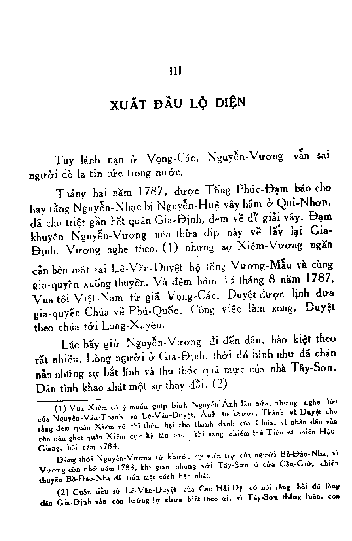 III
XUẤT ĐẦU LỘ DIỆN
Tuy lánh nạn ở Vọng-Các, Nguyễn-Vương vẫn sai
người dò la tin tức trong nước.
Tháng hai năm 1787, được Tống Phúc-Đạm báo cho
hay rằng Nguyễn-Nhạc bị Nguyễn-Huệ vây hãm ở Qui-Nhơn,
đã cho triệt gần hết quân Gia-Định, đem về để giải vây. Đạm
khuyên Nguyễn-Vương nên thừa dịp này về lấy lại Gia-
Định. Vương nghe theo, (1) nhưng sợ Xiêm-Vương ngăn
cản bèn mật sai Lê-Văn-Duyệt hộ tống Vương-Mẫu và cùng
gia-quyến xuống thuyền. Và đêm hôm tháng 8 năm 1787,
Vua tôi Việt-Nam từ giã Vọng-Các. Duyệt được lịnh đưa
gia-quyến Chúa về Phú-Quốc. Công việc làm xong, Duyệt
theo chúa tới Long-Xuyên.
Lúc bấy giờ Nguyễn-Vương đi đến đâu, hào kiệt theo
rất nhiều. Lòng người ở Gia-Định thời đó hình như đã chán
nản những sự bất lịnh và thu thóc quá mực của nhà Tây-Sơn.
Dân tình khao khát một sự thay đổi. (2)
(1) Vua Xiêm có ý muốn giúp binh Nguyễn-Ánh lần nữa, nhưng nghe lời
của Nguyễn-Văn-Thành và Lê-Văn-Duyệt, Ánh từ chối. Thành và Duyệt cho
rằng đem quân Xiêm về chỉ thêm hại cho thanh danh của Chúa, vì nhân dân vẫn
còn oán ghét quân Xiêm cực kỳ tàn khi sang chiếm Tiên và miền Hậu-
Giang, hồi năm 1784.
Đồng thời Nguyễn-Vương từ khước sự viện trợ của người Bồ-Đào-Nha, vì
Vương còn nhớ năm 1783, khi giao phong với Tây-Sơn ở cửa Cần-Giờ, chiến
thuyền Bồ-Đào-Nha đã trốn một cách hèn nhát.
(2) Cuốn tiểu sử Lê-Văn-Duyệt của Cao Hải-Để có nói rằng hồi đó lòng
dân Gia-Định vẫn còn hướng họ chưa biết theo ai, vì Tây-Sơn thắng luôn, còn